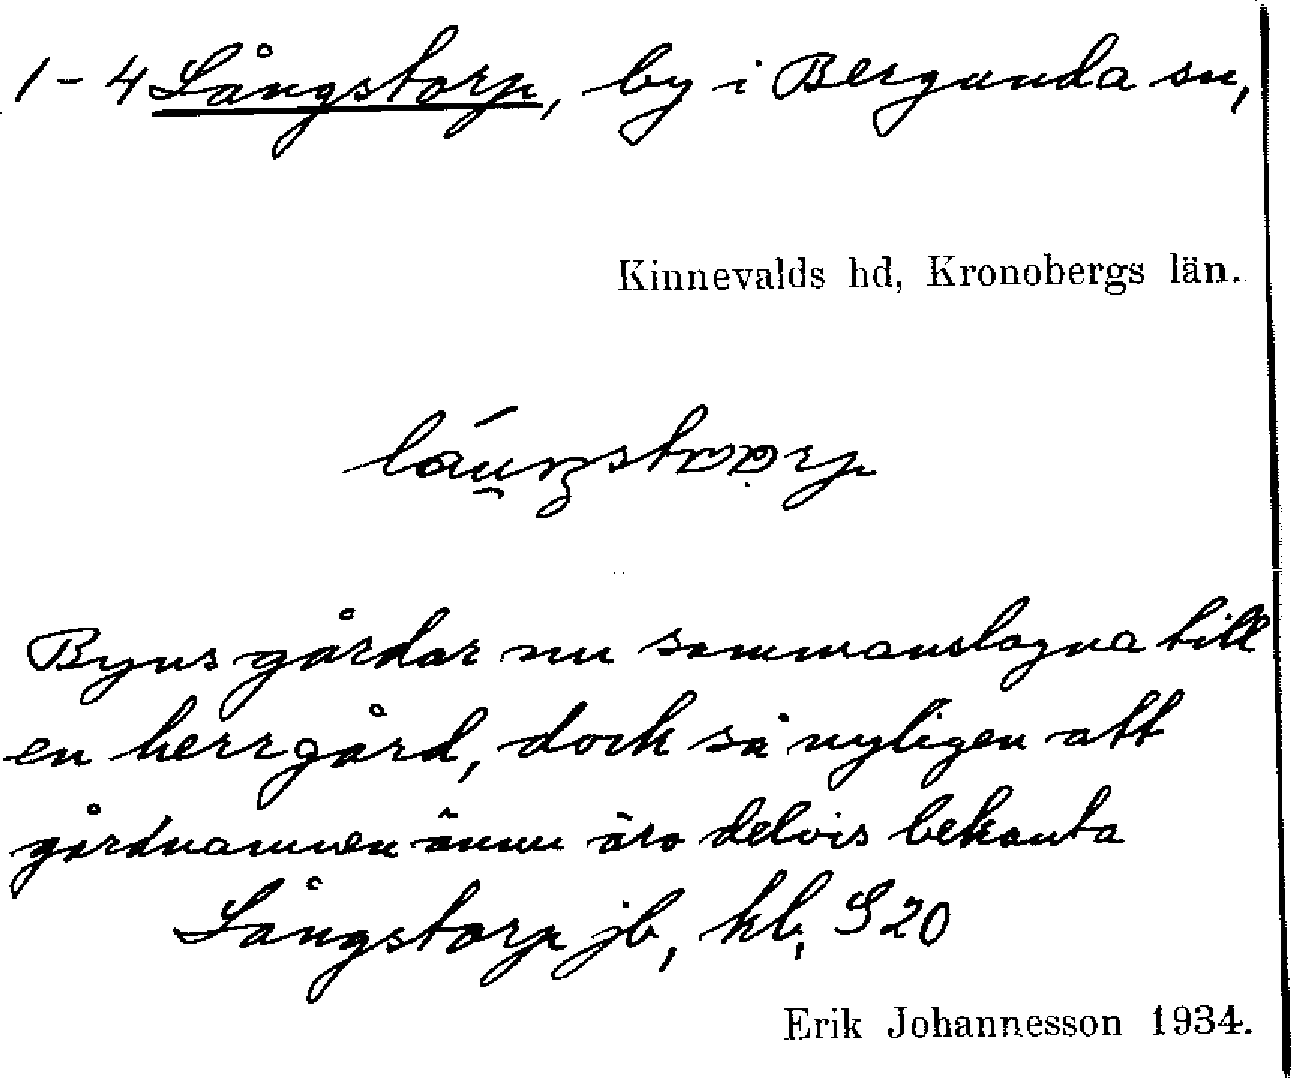 1-4 Långstorp, by i Bergunda sn,
Kinnevalds hd, Kronobergs län.
Byns gårdar nu sammanslagna till
en herrgård, dock så nyligen att
gårdnamnen ännu äro delvis bekanta
Långstorp jb, kb, S20
Erik Johannesson 1934.